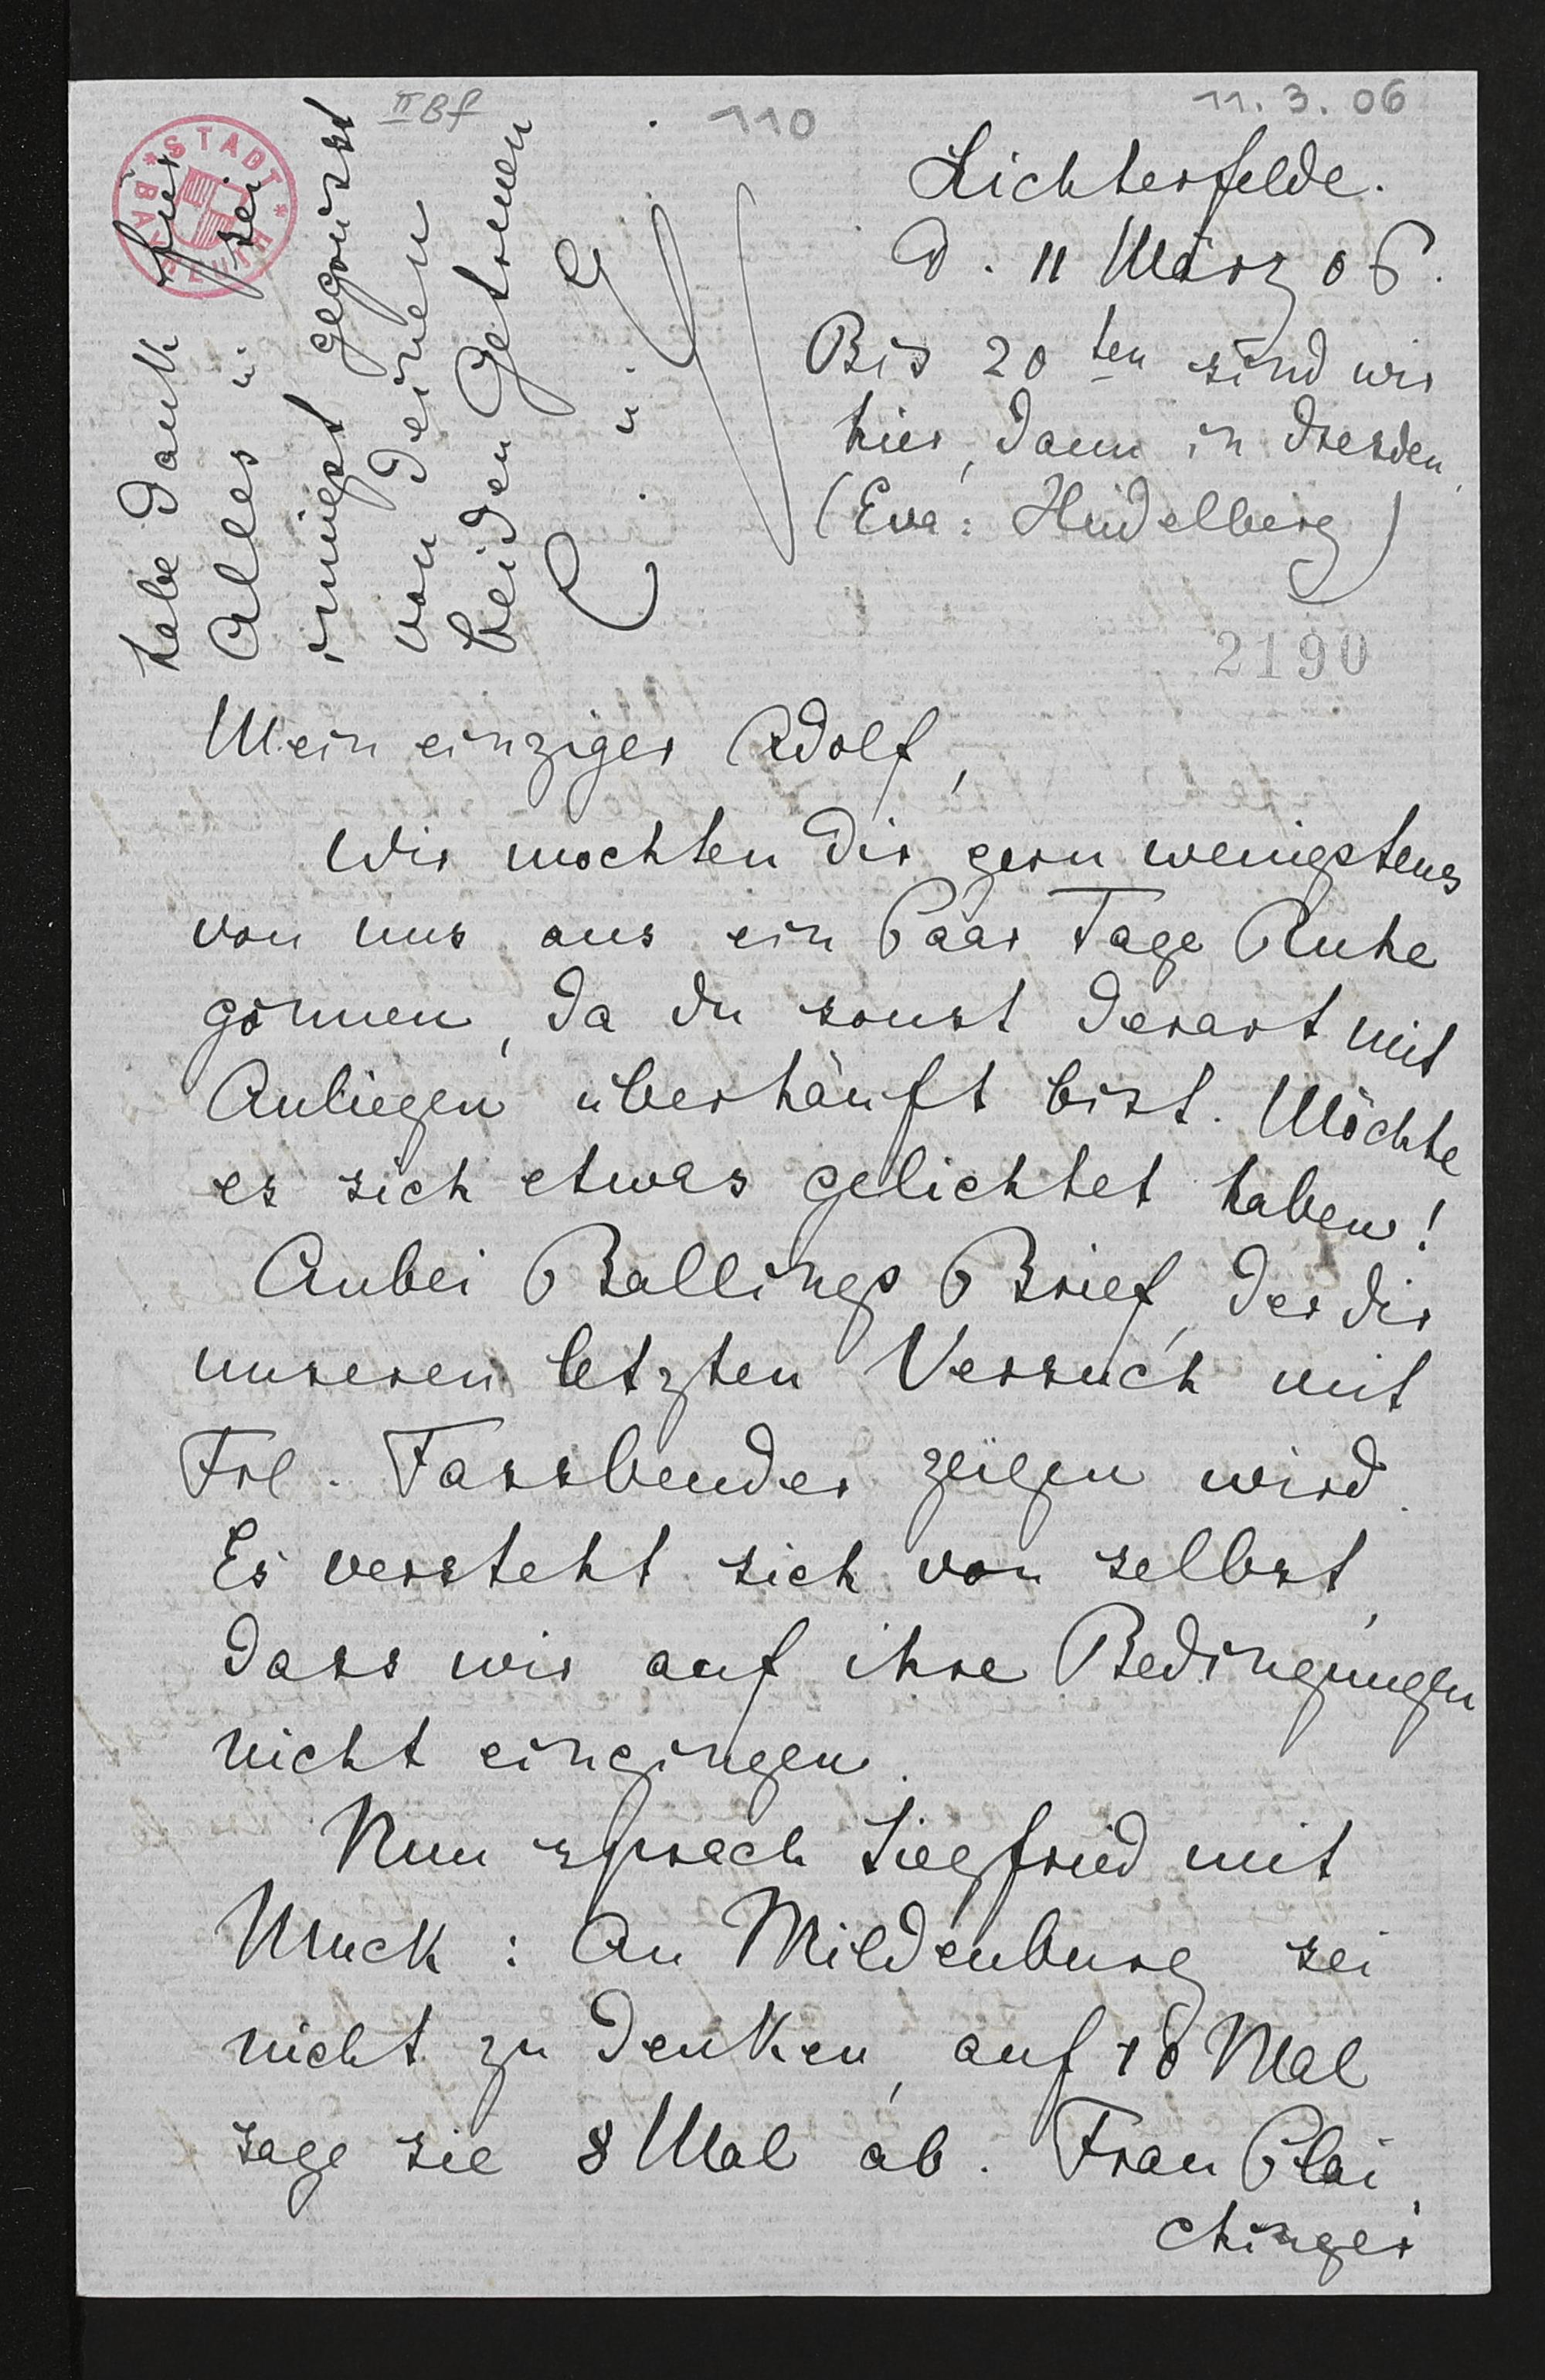 II Bf
110
11. 3. 06
* STADT * BAYREUTH
Lichterfelde.
d. 11 März 06.
Bis 20ten sind wir
hier, dann in Dresden,
(Eva: Heidelberg)
2190
Mein einziger Adolf,
Wir mochten dir gern wenigstens
von uns aus ein Paar Tage Ruhe
gönnen, da du sonst derart mit
Anliegen überhäuft bist. Möchte
es sich etwas gelichtet haben!
Anbei Ballings Brief, der dir
unseren letzten Versuch mit
Frl. Fassbender zeigen wird.
Es versteht sich von selbst,
dass wir auf ihre Bedingungen
nicht eingingen.
Nun sprach Siegfried mit
Muck: An Mildenburg sei
nicht zu denken, auf 10 Mal
sage sie 8 Mal ab. Frau Plai
chinger
habe Dank für
Alles u. sei
innigst gegrüsst
von Deinen
beiden Getreuen
C. u. S.